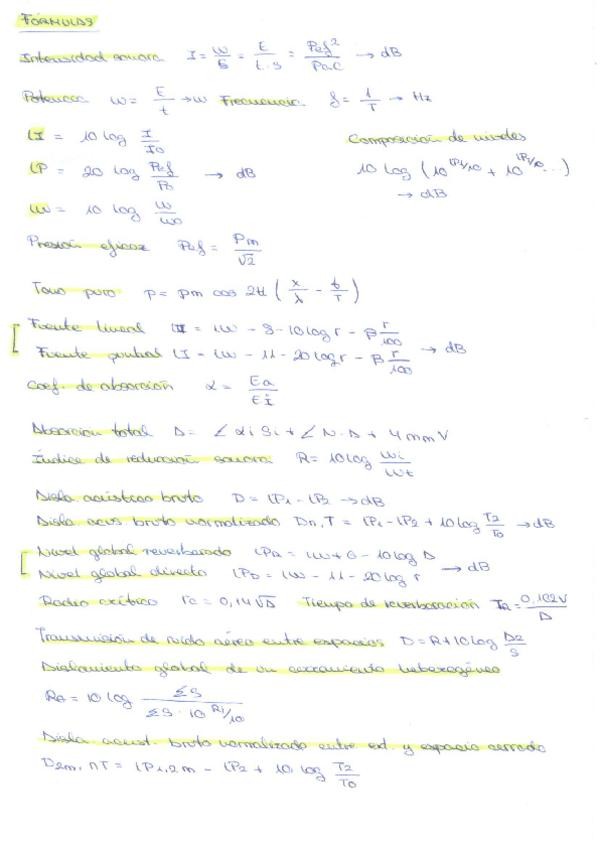 FÓRMULAS
Intensidad sonora I = W/S = E/t·s = Pef²/ρac → dB
Potencia W = E/t → W Frecuencia f = 1/T → Hz
LI = 10 log I/I0
Composición de niveles
LP = 20 log Pef/P0 → dB
10 log (10^LP1/10 + 10^LP2/10 ...) → dB
LW = 10 log W/W0
Presión eficaz Pef = Pm/√2
Tono puro p = pm cos 2π (x/λ - t/T)
Fuente lineal LI = LW - 8 - 10 log r - β r/100
Fuente puntual LI = LW - 11 - 20 log r - β r/100 → dB
Coef. de absorción α = Ea/Ei
Absorción total A = Σ αi Si + Σ N·A + 4mmV
Índice de reducción sonora R = 10 log Wi/Wt
Aisla. acústico bruto D = LP1 - LP2 → dB
Aisla acus bruto normalizado Dn,T = LP1 - LP2 + 10 log T2/T0 → dB
Nivel global reverberado LPR = LW + 6 - 10 log A
Nivel global directo LPD = LW - 11 - 20 log r → dB
Radio crítico rc = 0,14√A Tiempo de reverberación TR = 0,162V/A
Transmisión de ruido aéreo entre espacios D = R + 10 log A2/S
Aislamiento global de un cerramiento heterogéneo
RG = 10 log ΣS/ΣS·10^Ri/10
Aisla. acust. bruto normalizado entre ext. y espacio cerrado
D2m,nT = LP1,2m - LP2 + 10 log T2/T0